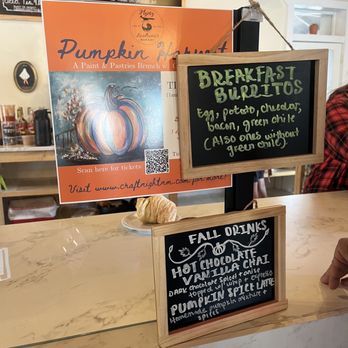 Pumpkin Harvest
A Paint & Pastries Brunch
Scan here for tickets
Visit www.craftnightnm.com for more!
BREAKFAST
BURRITOS
Egg, potato, cheddar,
bacon, green chile
(Also ones without
green chile)
FALL DRINKS
HOT CHOCOLATE
VANILLA CHAI
Dark chocolate
topped w/ whip +
PUMPKIN SPICE LATE
Homemade pumpkin mixture +
spices